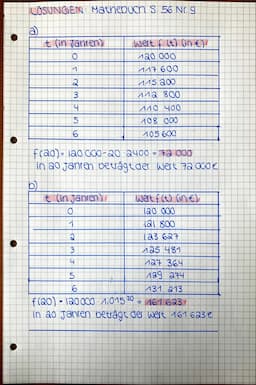 LÖSUNGEN Mathebuch S. 56 Nr. 9
a)
t (in Jahren) Wert f(t) (in €)
0 120 000
1 117 600
2 115 200
3 112 800
4 110 400
5 108 000
6 105 600
f(20) = 120 000 - 20 · 2400 = 72 000
in 20 Jahren beträgt der Wert 72 000 €
b)
t (in Jahren) Wert f(t) (in €)
0 120 000
1 121 800
2 123 627
3 125 481
4 127 364
5 129 274
6 131 213
f(20) = 120 000 · 1.015²⁰ = 161 623
in 20 Jahren beträgt der Wert 161 623 €